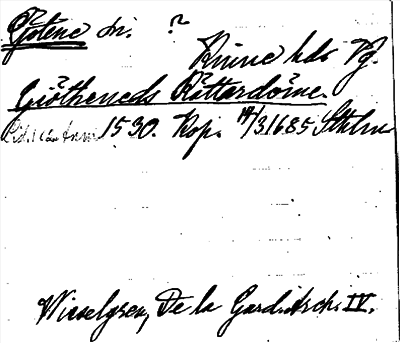 Götene sn. ?
Kinne hds Vg.
Giötheneds Rättardöme.
1530. Kop. 14/3 1685 Sthlm
Wieselgren, De la Gard. Arch. IV.